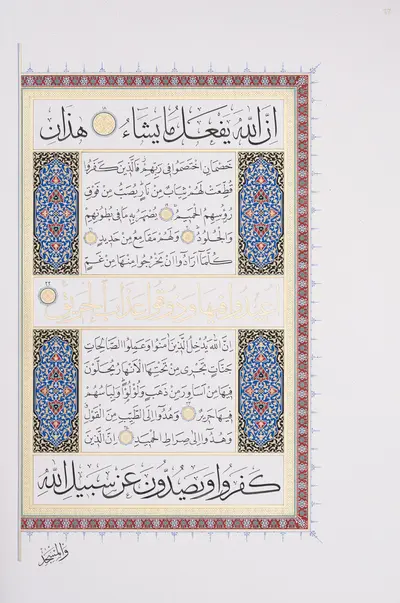 اِنَّ اللّٰهَ يَفْعَلُ مَا يَشَاءُ هٰذَانِ
خَصْمَانِ اخْتَصَمُوا فِي رَبِّهِمْ فَالَّذِينَ كَفَرُوا
قُطِّعَتْ لَهُمْ ثِيَابٌ مِنْ نَارٍ يُصَبُّ مِنْ فَوْقِ
رُؤُسِهِمُ الْحَمِيمُ يُصْهَرُ بِهِ مَا فِي بُطُونِهِمْ
وَالْجُلُودُ وَلَهُمْ مَقَامِعُ مِنْ حَدِيدٍ
كُلَّمَا اَرَادُوا اَنْ يَخْرُجُوا مِنْهَا مِنْ غَمٍّ
اُعِيدُوا فِيهَا وَذُوقُوا عَذَابَ الْحَرِيقِ ٢٢
اِنَّ اللّٰهَ يُدْخِلُ الَّذِينَ اٰمَنُوا وَعَمِلُوا الصَّالِحَاتِ
جَنَّاتٍ تَجْرِي مِنْ تَحْتِهَا الْاَنْهَارُ يُحَلَّوْنَ
فِيهَا مِنْ اَسَاوِرَ مِنْ ذَهَبٍ وَلُؤْلُؤًا وَلِبَاسُهُمْ
فِيهَا حَرِيرٌ وَهُدُوا اِلَى الطَّيِّبِ مِنَ الْقَوْلِ
وَهُدُوا اِلٰى صِرَاطِ الْحَمِيدِ اِنَّ الَّذِينَ
كَفَرُوا وَيَصُدُّونَ عَنْ سَبِيلِ اللّٰهِ
وَالْمَسْجِدِ